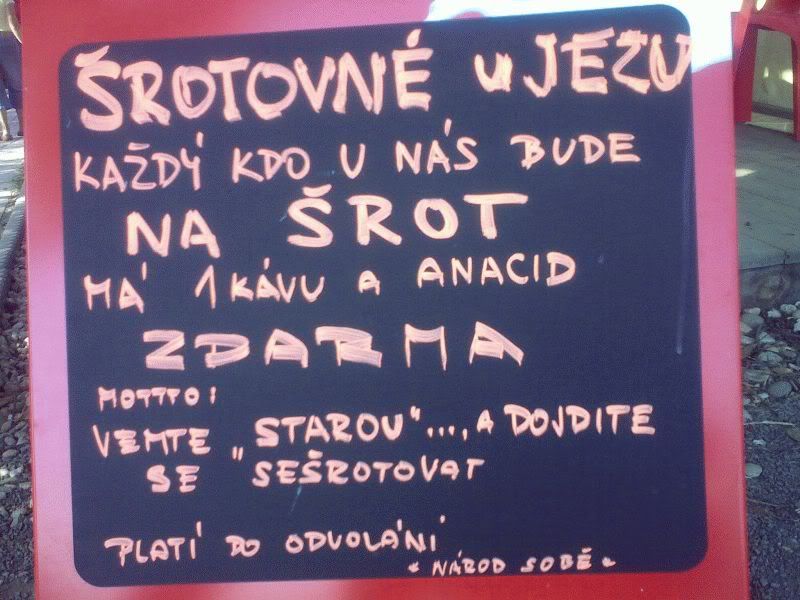 ŠROTOVNÉ u JEŽU
KAŽDÝ KDO U NÁS BUDE
NA ŠROT
MÁ 1 KÁVU A ANACID
ZDARMA
MOTTO:
VEMTE „STAROU"..., A DOJDITE
SE SEŠROTOVAT
PLATÍ DO ODVOLÁNÍ
"NÁROD SOBĚ"